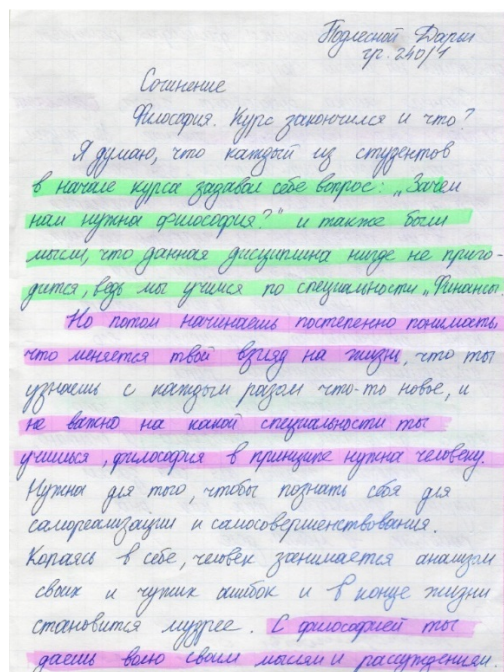 Подлесной Дарьи
гр. 240/1
Сочинение
Философия. Курс закончился и что?
Я думаю, что каждый из студентов
в начале курса задавал себе вопрос: „Зачем
нам нужна философия?" и также были
мысли, что данная дисциплина нигде не приго-
дится, ведь мы учимся по специальности „Финансы
Но потом начинаешь постепенно понимать,
что меняется твой взгляд на жизнь, что ты
узнаешь с каждым разом что-то новое, и
не важно на какой специальности ты
учишься, философия в принципе нужна человеку.
Нужна для того, чтобы познать себя для
самореализации и самосовершенствования.
Копаясь в себе, человек занимается анализом
своих и чужих ошибок и в конце жизни
становится мудрее. С философией ты
даешь волю своим мыслям и рассуждениям.